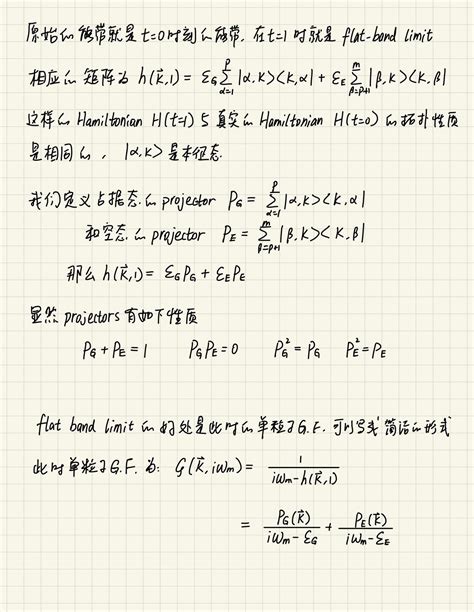 原始的能带就是t=0时刻的能带，在t=1时就是 flat-band limit
相应的矩阵为 h(k⃗,1) = ε_G Σ_{α=1}^{p} |α,k><k,α| + ε_E Σ_{β=p+1}^{m} |β,k><k,β|
这样的 Hamiltonian H(t=1) 与真实的 Hamiltonian H(t=0) 的拓扑性质
是相同的，|α,k> 是本征态.
我们定义占据态的 projector P_G = Σ_{α=1}^{p} |α,k><k,α|
和空态的 projector P_E = Σ_{β=p+1}^{m} |β,k><k,β|
那么 h(k⃗,1) = ε_G P_G + ε_E P_E
显然 projectors 有如下性质
P_G + P_E = 1 P_G P_E = 0 P_G² = P_G P_E² = P_E
flat band limit 的好处是此时的单粒子G.F. 可以写成简洁的形式
此时单粒子G.F. 为: G(k⃗, iω_m) = 1 / (iω_m - h(k⃗,1))
= P_G(k⃗) / (iω_m - ε_G) + P_E(k⃗) / (iω_m - ε_E)